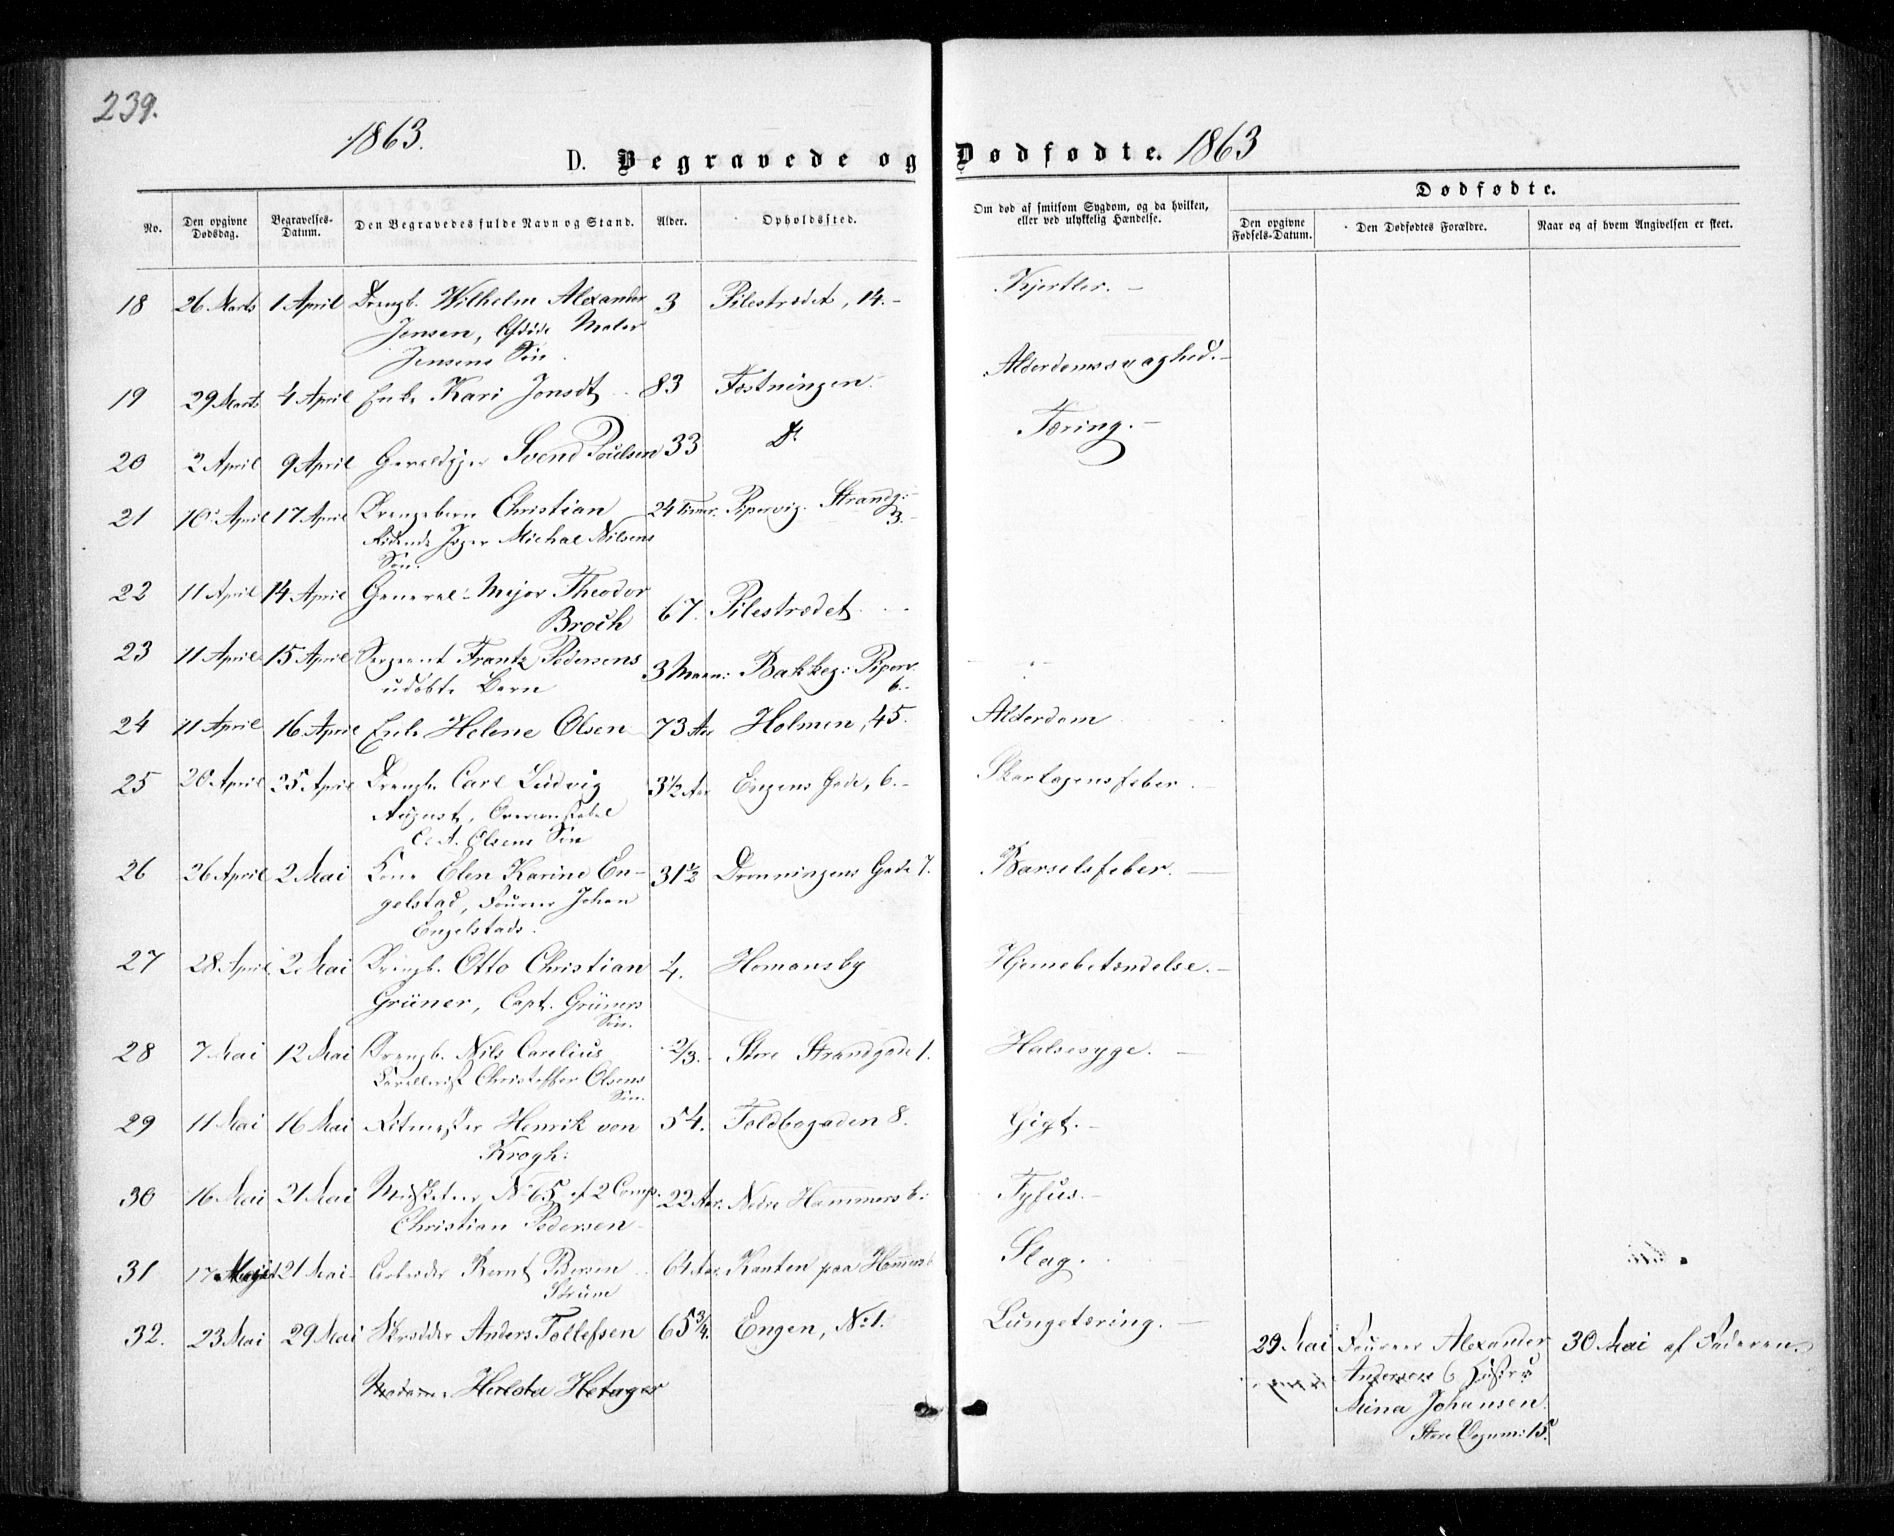 239.
1863.
D. Begravede og Dødfødte. 1863
Dødfødte.
No.
Den opgivne Dødsdag.
Begravelses-Datum.
Den Begravedes fulde Navn og Stand.
Alder.
Opholdssted.
Om død af smitsom Sygdom, og da hvilken, eller ved ulykkelig Hændelse.
Den opgivne Fødsels-Datum.
Den Dødfødtes Forældre.
Naar og af hvem Angivelsen er skeet.
18 26 Marts 1 April Drengb. Wilhelm Alexander 3 Pilestrædet, 14. Kjertler.
Jensen, Afdøde Maler
Jensens Søn.
19 29 Marts 4 April Enke Kari Jonsdt 83 Fæstningen. Alderdomssvaghed.
20 2 April 9 April Geraldiger Svend Poulsen 33 Do Tæring.
21 10 April 17 April Drengebarn Christian 24 Timer. Pipervig. Strandg:
3.
Ridende Jæger Michal Nilsens
Søn.
22 11 April 14 April General-Major Theodor
Broch 67. Pilestrædet
23 11 April 15 April Sergeant Frantz Pedersens 3 Maan: Bakkeg: Piperv.
6.
udøbte Barn
24 11 April 16 April Enke Helene Olsen 73 Aar Holmen, 45. Alderdom
25 20 April 25 April Drengb. Carl Ludvig 3½ Aar Engens Gade, 6. Skarlagensfeber.
August, Overconstabel
C. A. Olsens Søn
26 26 April 2 Mai Kone Elen Karine En- 31½ Dronningens Gade 7. Barselsfeber.
gelstad, Fourer Johan
Engelstads.
27 28 April 2 Mai Drengb. Otto Christian 4. Homansby Hjernebetændelse.
Grüner, Capt. Grüners
Søn.
28 7 Mai 12 Mai Drengb. Nils Carelius 2/3. Store Strandgade 1. Halsesyge.
Christoffer Olsens
Søn.
29 11 Mai 16 Mai Ritmester Henrik von 54. Toldbogaden 8. Gigt.
Krogh.
30 16 Mai 21 Mai Musketeer No 65 af 2 Comp. 22 Aar. Nedre Hammersb: Tyfus.
Christian Pedersen
31 17 Mai 21 Mai Arbeider Bernt Pedersen 64 Aar. Kanten paa Hammersb Slag.
32. 23 Mai 29 Mai Skrædder Anders Tollefsen 65 3/4. Engen, No 1. Lungetæring.
29 Mai Fourer Alexander 30 Mai af Faderen.
Andersen & Hustru
Mina Johansen.
Store Vognm: 15.
Madame Hulda Hetager